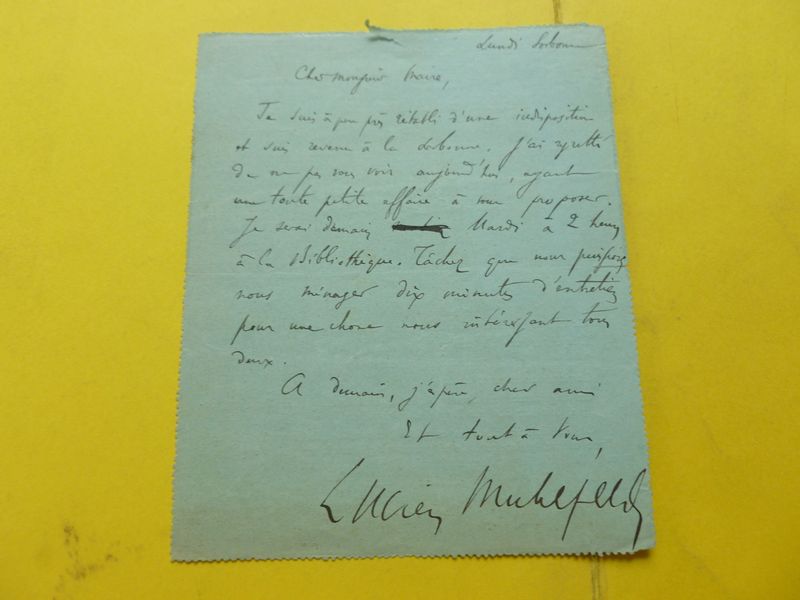 Lundi Sorbonne
Cher monsieur Maire,
Je suis à peu près rétabli d'une indisposition
et suis revenu à la Sorbonne. J'ai regretté
de ne pas vous voir aujourd'hui, ayant
une toute petite affaire à vous proposer.
Je serai demain Mardi à 2 heures
à la Bibliothèque. Tâchez que nous puissions
nous ménager dix minutes d'entretien
pour une chose nous intéressant tous
deux.
A demain, j'espère, cher ami
Et tout à vous,
Lucien Muhlfeld